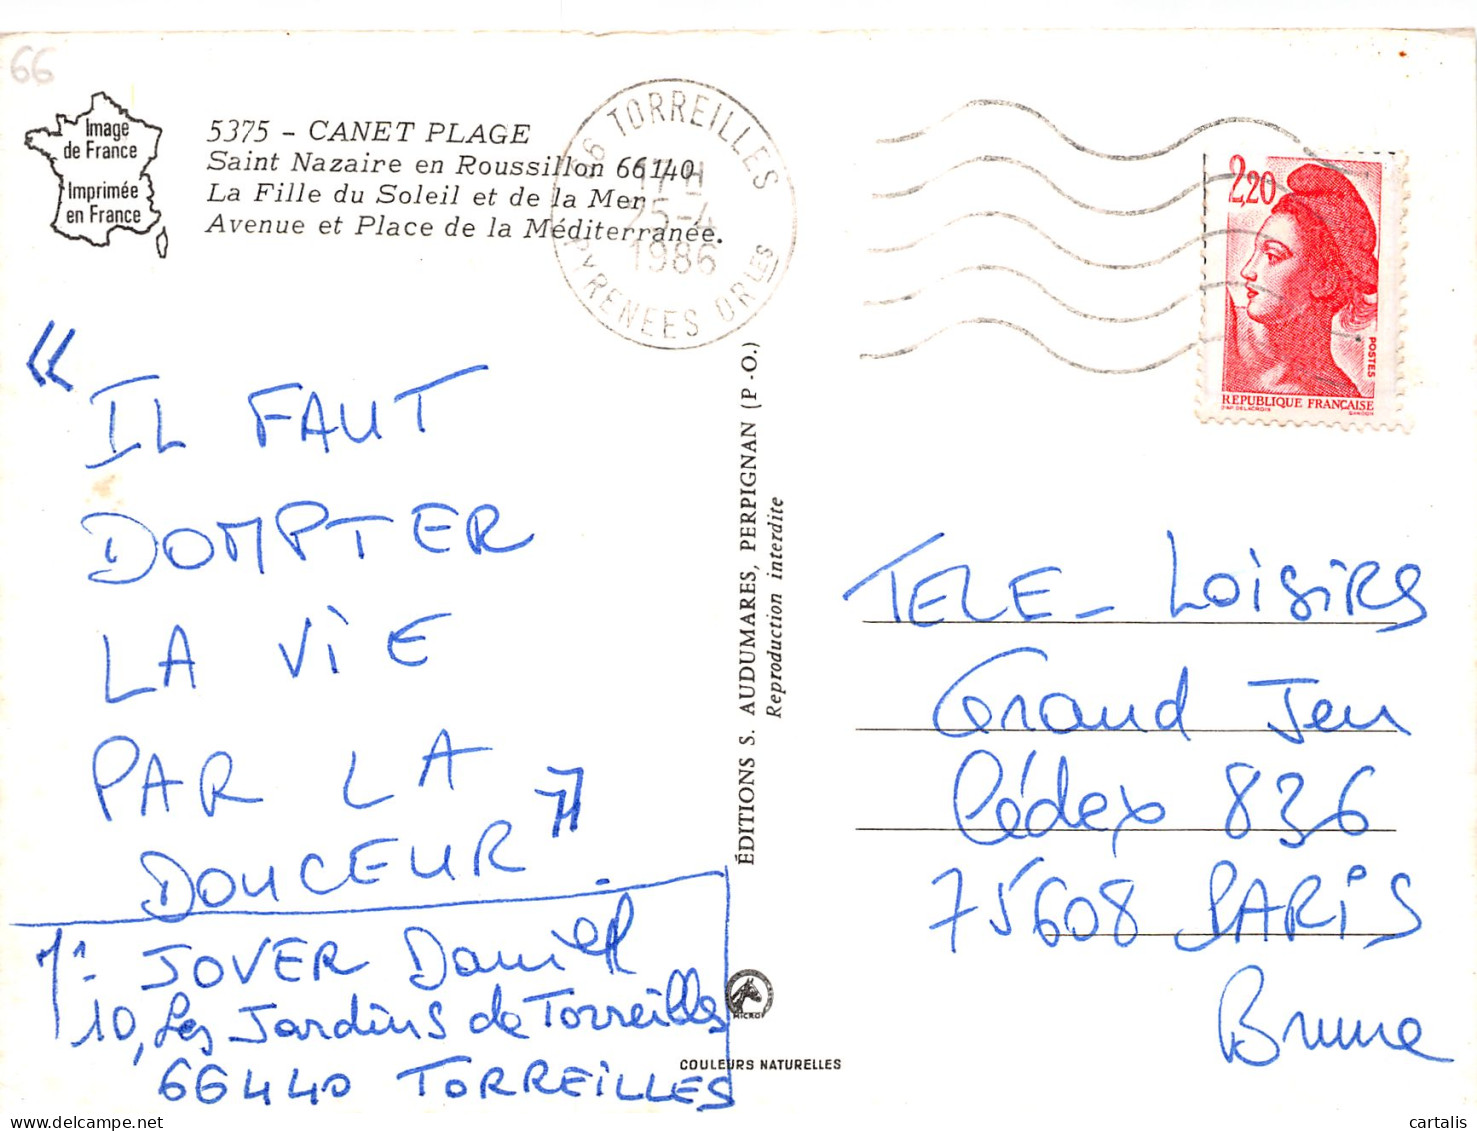 66
Image
de France
Imprimée
en France
5375 - CANET PLAGE
Saint Nazaire en Roussillon 66140
La Fille du Soleil et de la Mer
Avenue et Place de la Méditerranée.
66 TORREILLES
17 H
25-4
1986
PYRENEES ORLES
2,20
POSTES
REPUBLIQUE FRANÇAISE
D'AP. DELACROIX GANDON
« IL FAUT
DOMPTER
LA VIE
PAR LA
DOUCEUR » .
JOVER Daniel
10, Les Jardins de Torreilles
66440 TORREILLES
ÉDITIONS S. AUDUMARES, PERPIGNAN (P.-O.)
Reproduction interdite
MICRO
COULEURS NATURELLES
TELE - LOiSiRS
Grand Jeu
Cédex 836
75608 PARiS
Brune
cartalis